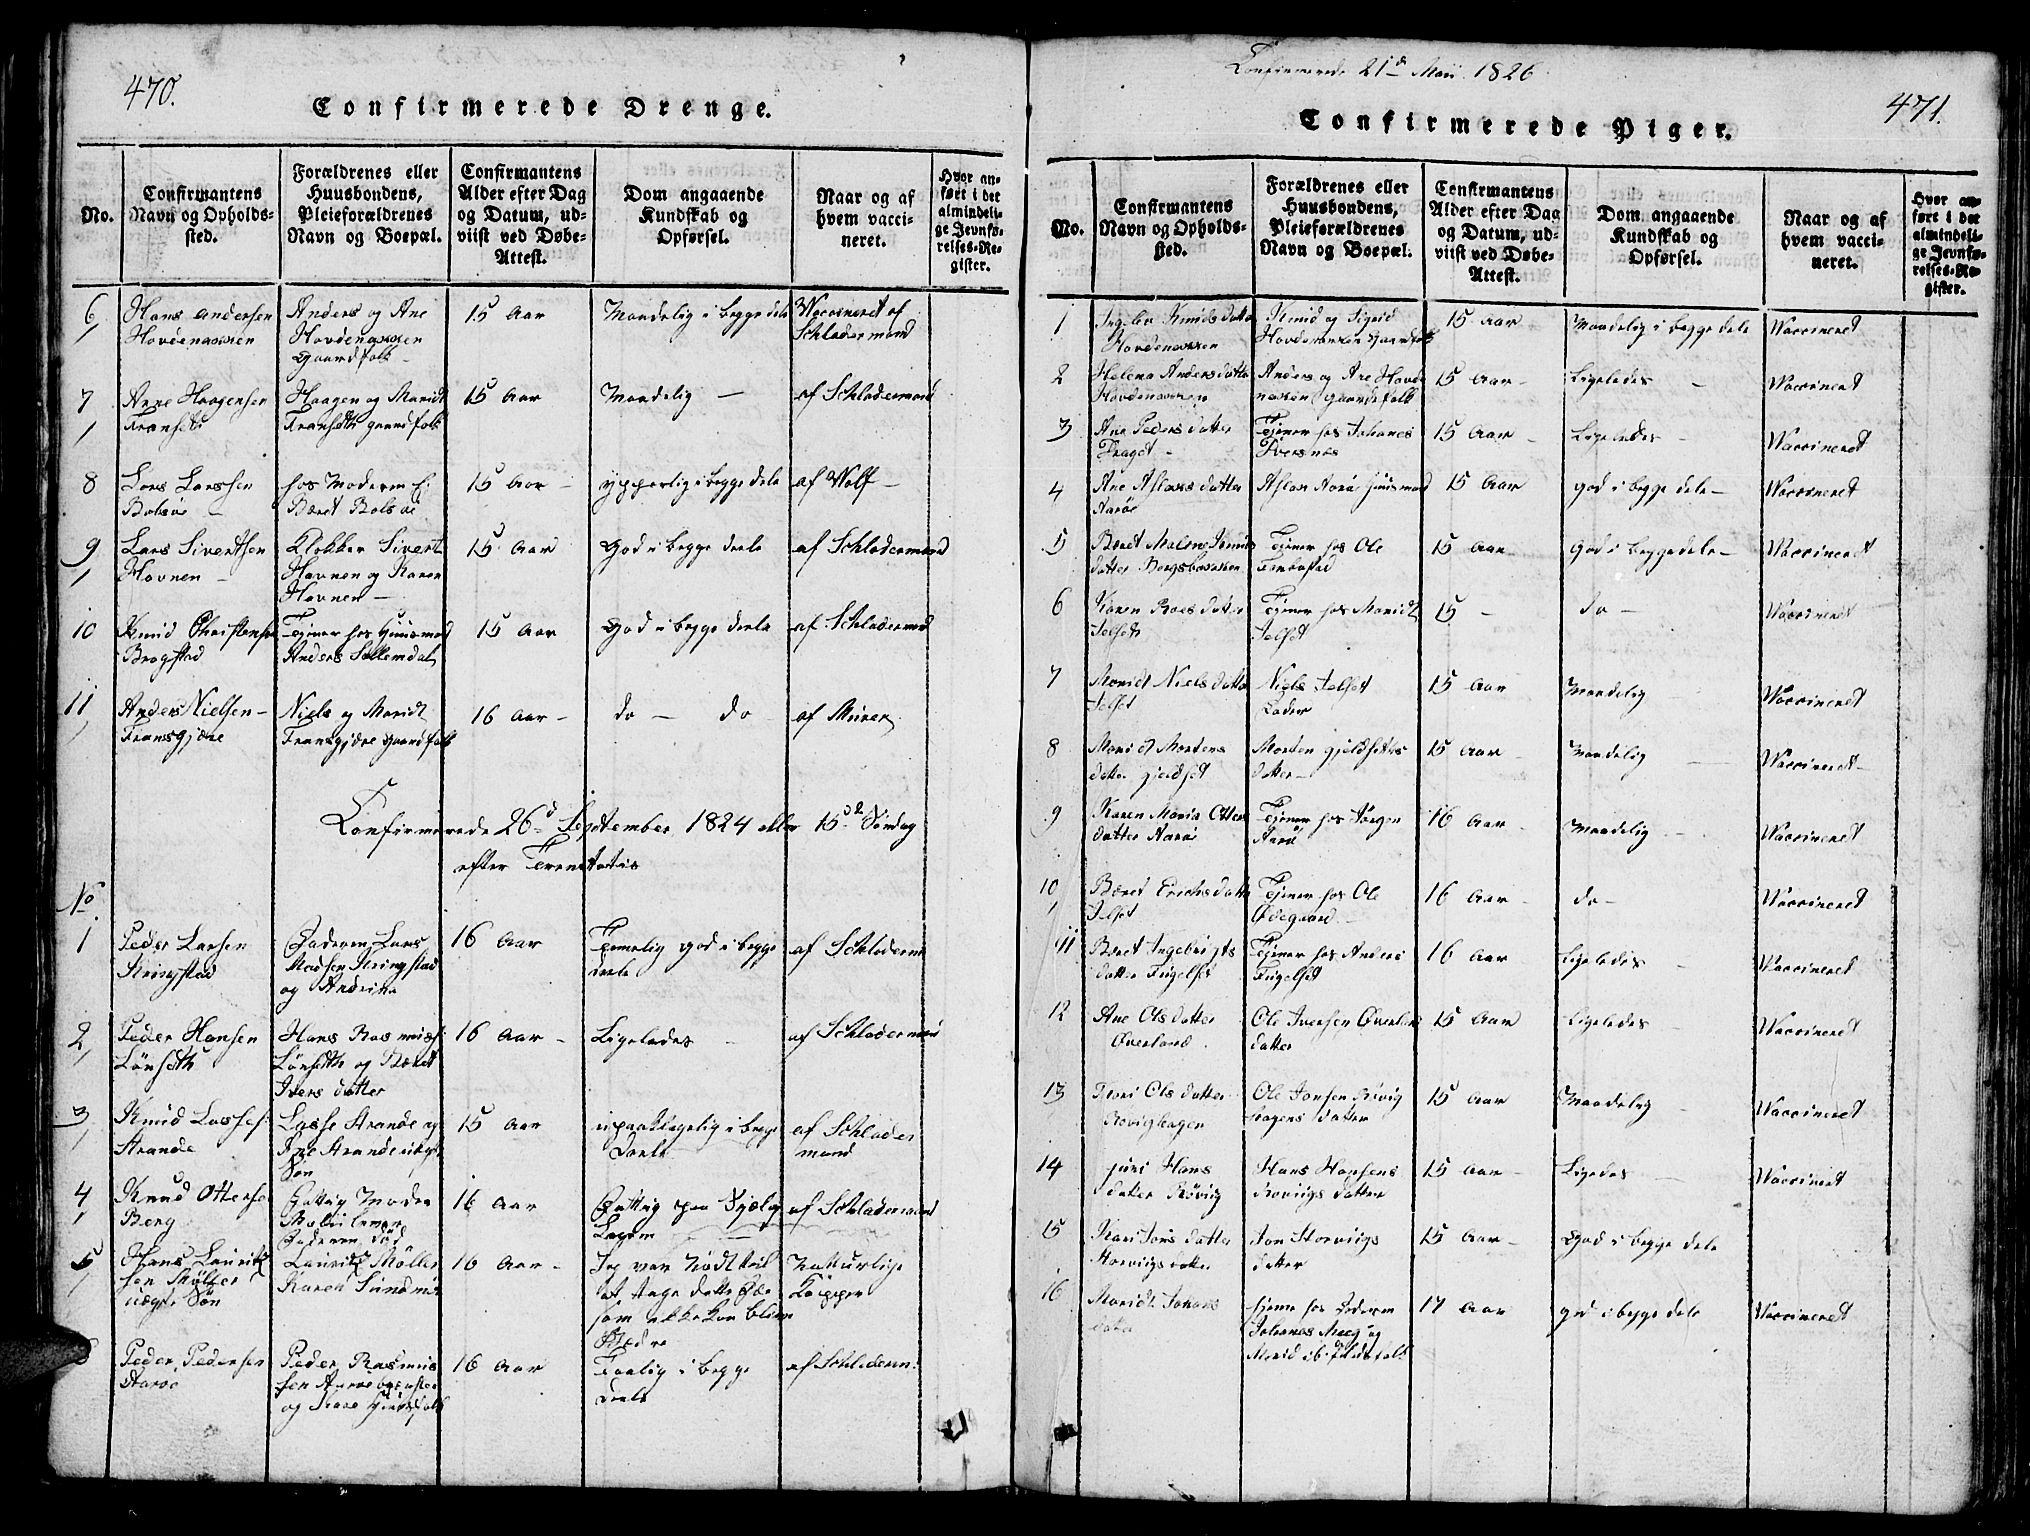 470.
Confirmerede Drenge.
No.
Confirmantens
Navn og Opholds-
sted.
Forældrenes eller
Huusbondens,
Pleieforældrenes
Navn og Boepæl.
Confirmantens
Alder efter Dag
og Datum, ud-
viist ved Døbe-
Attest.
Dom angaaende
Kundskab og
Opførsel.
Naar og af
hvem vacci-
neret.
Hvor an-
ført i det
almindeli-
ge Jevnfø-
relses-Re-
gister.
6
Hans Andersen
Hovdenakken
Anders og Ane
Hovdenakken
Gaardfolk
15 Aar
Maadelig i begge dele
Vaccineret af
Schladermand
7
Arne Haagensen
Franseth
Haagen og Maridt
Franseth gaardfolk
15 Aar
Maadelig —
af Schladermand
8
Lars Larssen
Bolsøe
hos Moderen
Beret Bolsøe
15 Aar
ypperlig i begge dele
af Wolf
9
Lars Sivertsen
Havnen
Klokker Sivert
Havnen og Karen
Havnen
15 Aar
God i begge deele
af Schladermand
10
Knud Christens
Bragstad
Tjener hos Huusmd
Anders Sollemdal
15 Aar
God i begge deele
af Schladermd
11
Anders Nielsen
Fransgjære
Niels og Maridt
Fransgjære gaardfolk
16 Aar
do — do
af Murer
Confirmerede 26d September 1824 eller 15de Søndag
efter Trenitatis
No
1
Peder Larsen
Kringstad
Faderen Lars
Madsen Kringstad
og Andrika
16 Aar
Temelig god i begge
deele
af Schladerm
2
Peder Hansen
Lönseth
Hans Rasmuss
Lönseth og Beret
Ivers datter
16 Aar
Ligeledes
af Schladermand
3
Knud Lasses
Strande
Lasse Strande og
Ane Strande
Søn
15 Aar
upaaklagelig i begge
Deele
af Schlader
mand
4
Knud Otterse
Berg
Fattig Moder
Faderen död
16 Aar
Fattig paa
af Schladermand
5
Hans Lauritz
sen Møller
uægte Søn
Lauritz Møller
Karen Sundmör
16 Aar
Jeg var nödt til
at tage dette
som ikke kan blive
Bedre
Naturlige
Kopper
Peder Pedersen
Aarøe
Peder Rasmus
sen Aarøe
16 Aar
Taalig i begge
Deele
af Schladerm:
Confirmerede 21d Maii 1826
Confirmerede Piger.
471.
No.
Confirmantens
Navn og Opholds-
sted.
Forældrenes eller
Huusbondens,
Pleieforældrenes
Navn og Boepæl.
Confirmantens
Alder efter Dag
og Datum, ud-
viist ved Døbe-
Attest.
Dom angaaende
Kundskab og
Opførsel.
Naar og af
hvem vacci-
neret.
Hvor an-
ført i det
almindeli-
ge Jevnfø-
relses-Re-
gister.
1
Ingebor Knuds datter
Hovdenakken
Knud og Sigrid
Hovdenakken Gaardfolk
15 Aar
Maadelig i begge dele
Vaccineret
2
Helena Anders datter
Hovdenakken
Anders og Ane Hovde
naken gaardefolk
15 Aar
Ligeledes
Vaccineret
3
Ane Peders datter
Tjener hos Johanes
15 Aar
Ligeledes
Vaccineret
4
Ane Aslaks datter
Aarøe
Aslak Aarø huusmand
15 Aar
god i begge dele
Vaccineret
5
Beret Malene Knuds
datter
Tjener hos Ole
15 Aar
god i begge dele
Vaccineret
6
Karen Roes datter
Jelset
Tjener hos Maridt
Jelset
15
do
Vaccineret
7
Maridt Niels datter
Jelset
Niels Jelset
Lader
15 Aar
Maadelig
Vaccineret
8
Marit Mortens
datter gjeldset
Morten gjeldsets
datter
15 Aar
Maadelig
Vaccineret
9
Karen Maria Otters
datter Aarøe
Tjener hos Jörgen
Aarø
16 Aar
Maadelig
Vaccineret
10
Beret Erichs datter
Jelset
Tjener hos Ole
Ødegaard
16 Aar
do
Vaccineret
11
Beret Ingebrigts
datter Fugelset
Tjener hos Anders
Fugelset
16 Aar
Ligeledes
Vaccineret
12
Ane Ols datter
Øverland
Ole Iversen Øverlan
datter
15 Aar
Ligeledes
Vaccineret
13
Ols datter
Røvighagen
Ole Jonsen Røvig
hagens datter
15 Aar
Maadelig
Vaccineret
14
guri Hans
datter Røvig
Hans Hansens
Roviigs datter
15 Aar
Ligedes
Vaccineret
15
Kari Jons datter
Storviigs datter
Jon Storviigs
datter
15 Aar
God i begge dele
16
Maridt Johans
datter
tjener hos Faderen
Johannes Meeg og
17 Aar
god i begge dele
Vaccineret